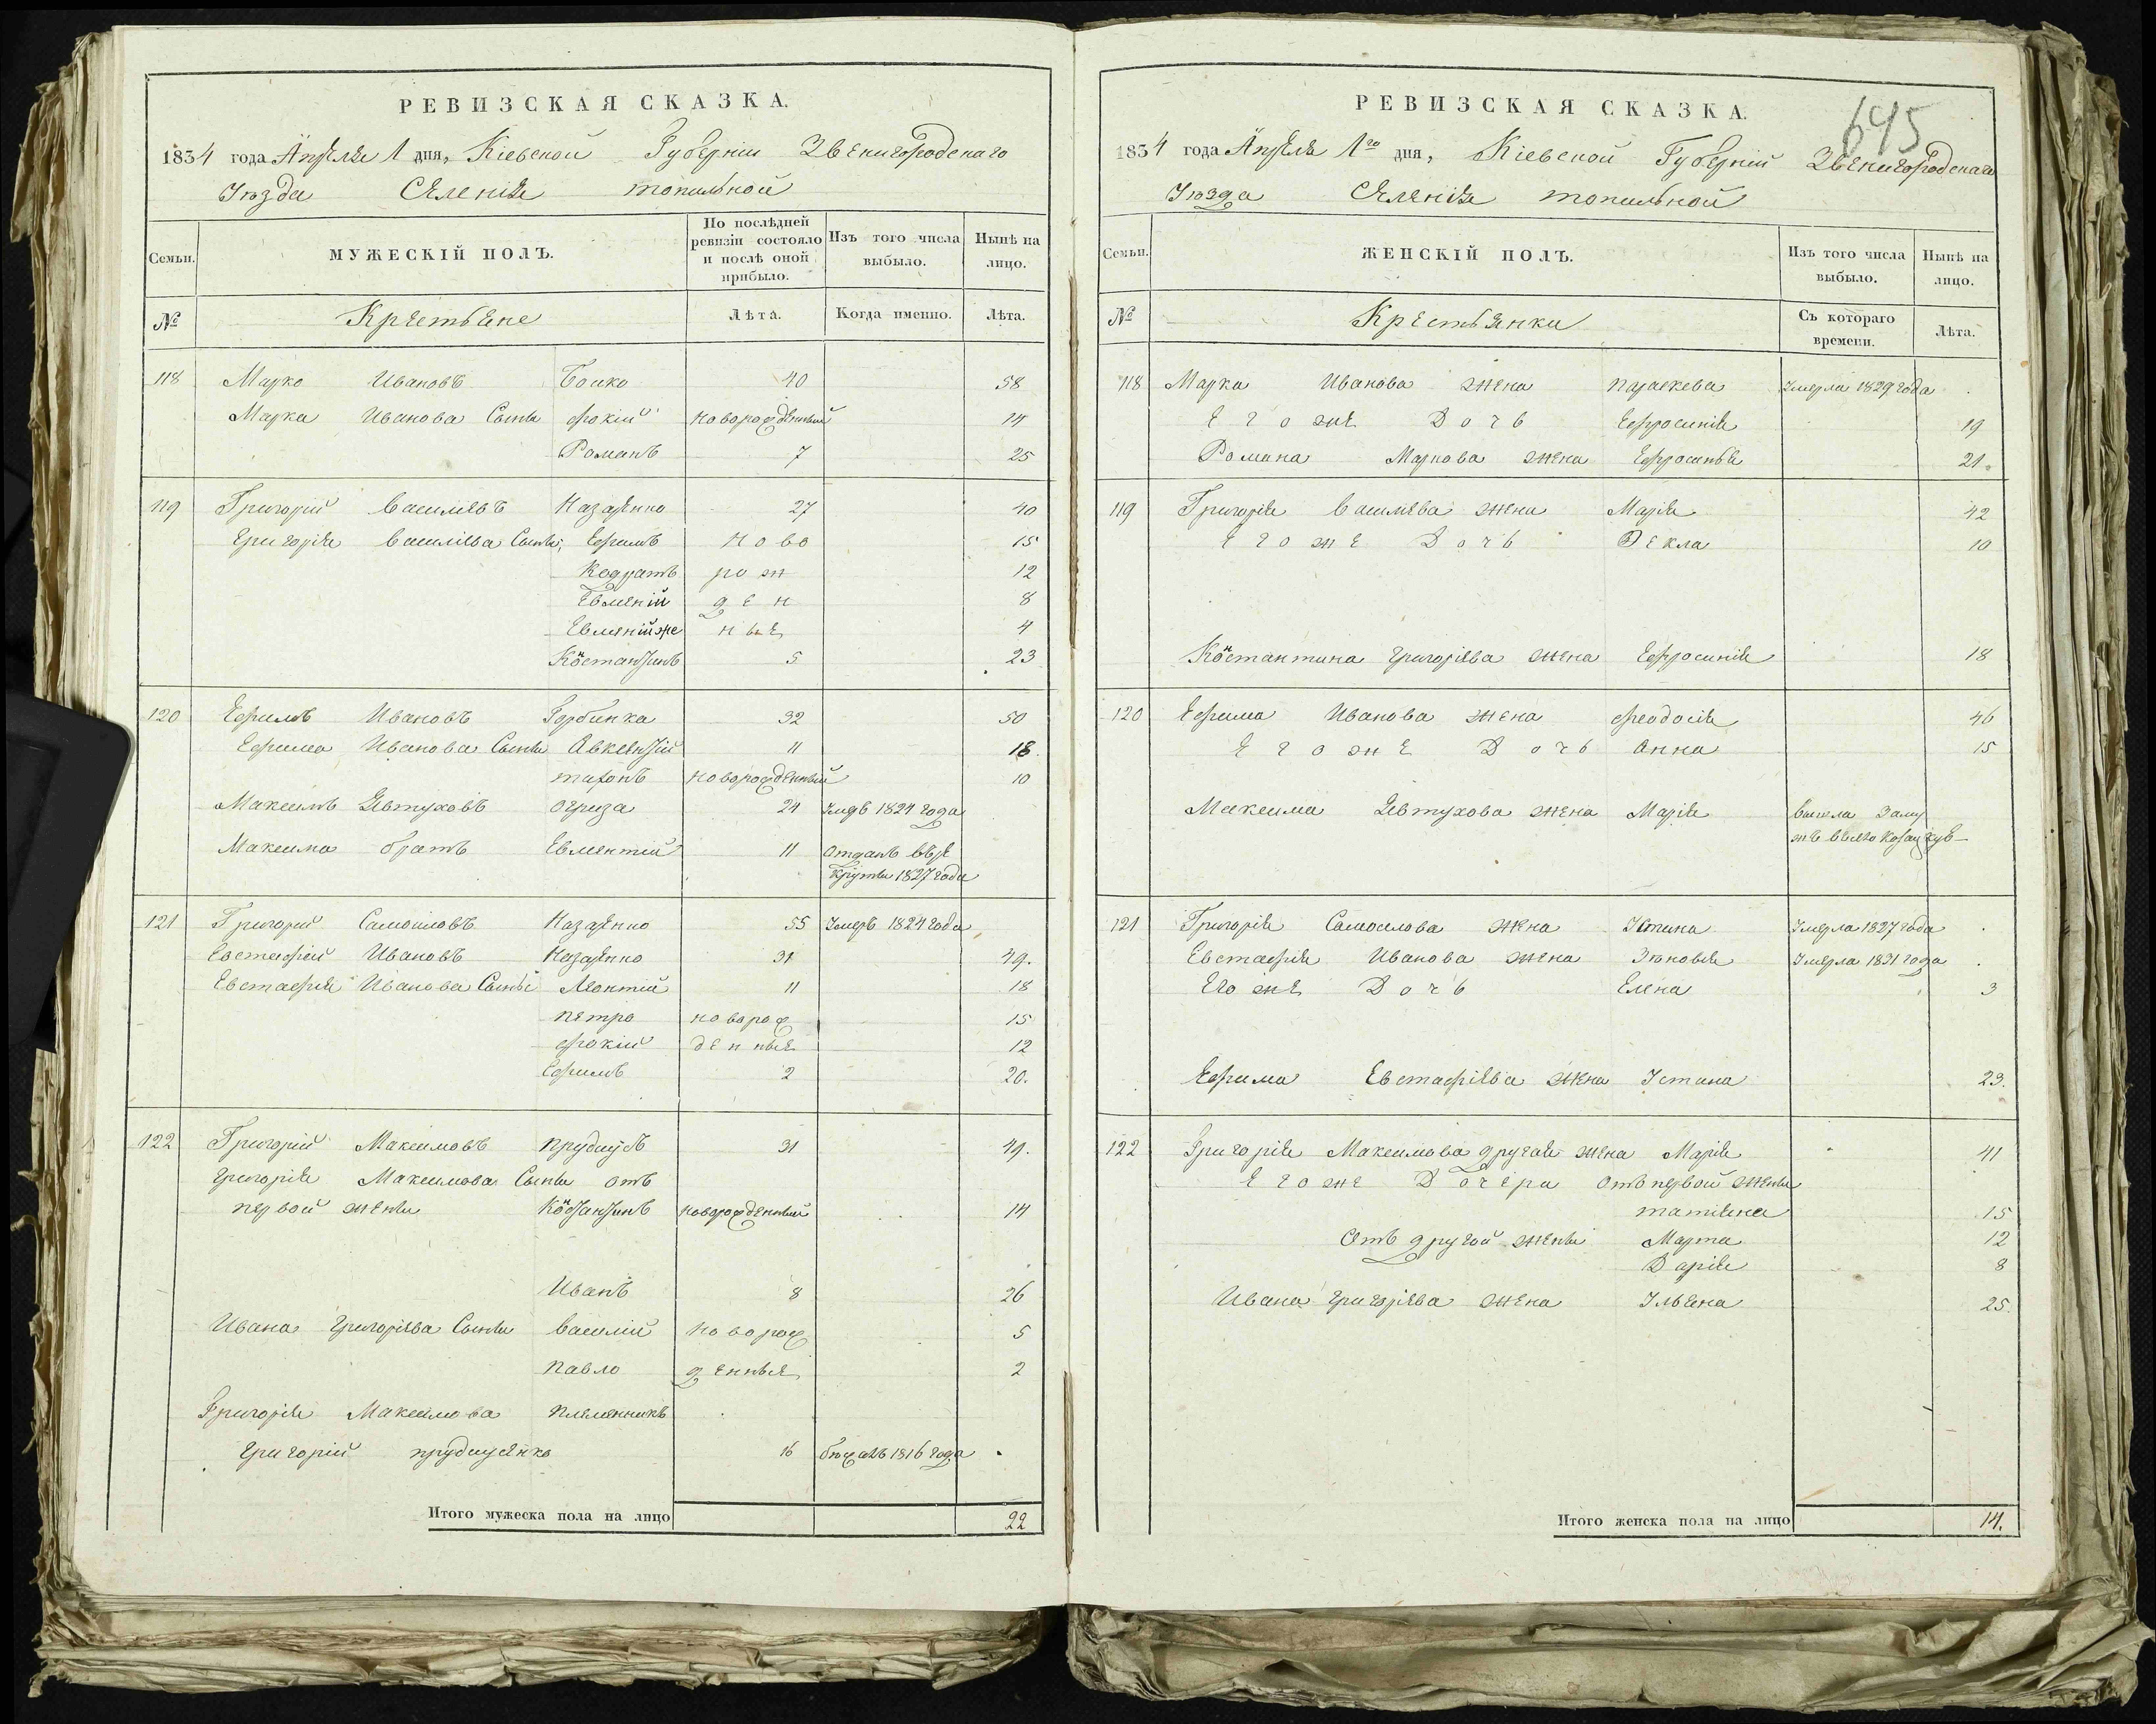 РЕВИЗСКАЯ СКАЗКА.
1834 года Апреля 1 дня, Кіевской Губерніи Звенигородскаго
Уѣзда Селенія топильной
Семьи.
МУЖЕСКІЙ ПОЛЪ.
По послѣдней ревизіи состояло и послѣ оной прибыло.
Изъ того числа выбыло.
Нынѣ на лицо.
№
Крестьяне
Лѣта.
Когда именно.
Лѣта.
118 Марко Ивановъ Бойко 40 58
Марка Иванова Сыны фокій новорожденный 14
Романъ 7 25
119 Григорій Василіевъ Назаренко 27 40
Григорія Василіева Сыны, Ефимъ ново 15
Кодратъ рож 12
Евменій ден 8
Евменійже ные 4
Костантинъ 5 23
120 Ефимъ Ивановъ Горбинка 32 50
Ефима Иванова Сыны Авкентій 11 18
тихонъ новорожденный 10
Максимъ Явтуховъ Огриза 24 Умръ 1824 года
Максима братъ Евлентій 11 Отданъ въ ре
круты 1827 года
121 Григорій Самойловъ Назаренко 55 Умеръ 1824 года
Евстафій Ивановъ Назаренко 31 49.
Евстафія Иванова Сыны Леонтій 11 18
петро оворож 15
фокій денные 12
Ефимъ 2 20.
122 Григорій Максимовъ прудиусъ 31 49.
Григорія Максимова Сыны отъ
первой жены Костантинъ новорожденный 14
Иванъ 8 26
Ивана Григоріева Сыны Василій новорож 5
павло денные 2
Григорія Максимова племянникъ
Григорій прудиусенко 16 бежалъ 1816 года
Итого мужеска пола на лицо 22
РЕВИЗСКАЯ СКАЗКА.
645
1834 года Апреля 1го дня, Кіевской Губерніи Звенигородскаго
Уѣзда Селенія топильной
Семьи.
ЖЕНСКІЙ ПОЛЪ.
Изъ того числа выбыло.
Нынѣ на лицо.
№
Крестьянки
Съ котораго времени.
Лѣта.
118 Марка Иванова жена параскева Умерла 1829 года
Его же Дочь Ефросинія 19
Романа Маркова жена Ефросинья 21
119 Григорія Василіева жена Марія 42
Его же Дочь Текла 10
Костантина Григоріева жена Ефросинія 18
120 Ефима Иванова жена феодосія 46
Его же Дочь Анна 15
Максима Явтухова жена Марія Вышла заму
жъ
121 Григорія Самойлова жена Устина Умерла 1827 года
Евстафія Иванова жена Зѣновія Умерла 1831 года
Его же Дочь Елена 3
Ефима Евстафіева жена Устина 23.
122 Григорія Максимова другая жена Марія 41
Его же Дочери отъ первой жены
татіяна 15
Отъ другой жены Марта 12
Дарія 8
Ивана Григоріева жена Ульяна 25.
Итого женска пола на лицо 14.